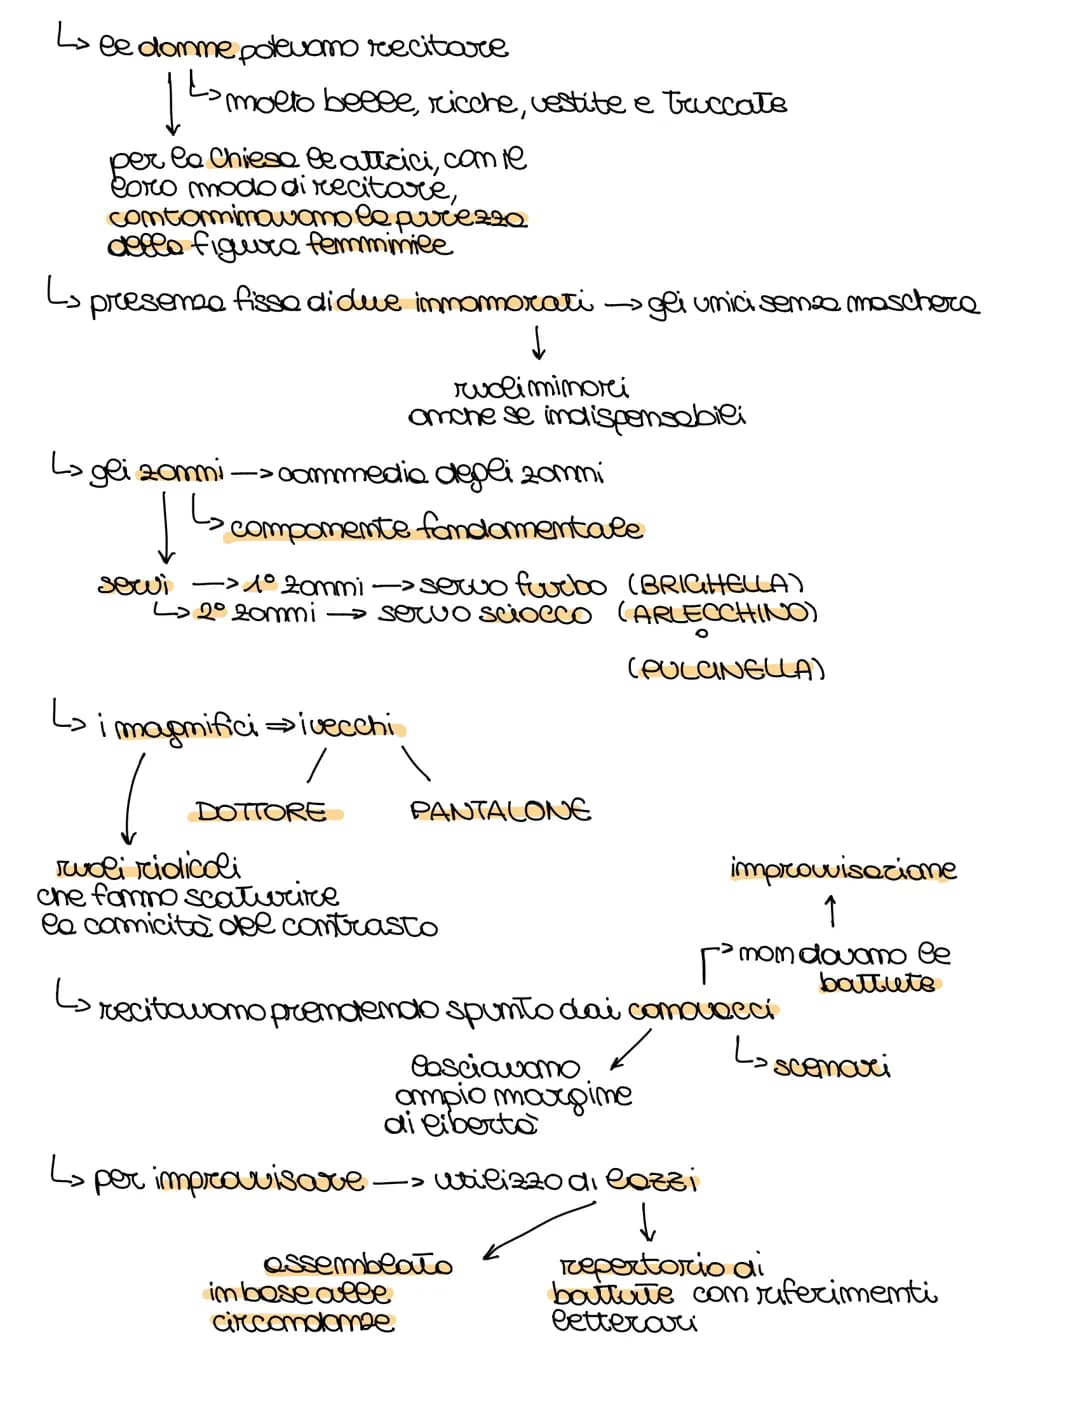 ↳ le donne potevano recitare
↳ molto belle, ricche, vestite e truccate
per la Chiesa le attrici, con il
loro modo di recitare,
contaminavano la purezza
della figura femminile
↳ presenza fissa di due innamorati → gli unici senza maschera
ruoli minori
anche se indispensabili
↳ gli zanni → commedia degli zanni
↳ componente fondamentale
servi → 1° zanni → servo furbo (BRIGHELLA)
↳ 2° zanni → servo sciocco (ARLECCHINO)
o
(PULCINELLA)
↳ i magnifici ⇒ i vecchi
DOTTORE PANTALONE
ruoli ridicoli
che fanno scaturire
la comicità del contrasto
improvvisazione
↑
non davano le
battute
↳ recitavano prendendo spunto dai canovacci
↳ scenari
lasciavano
ampio margine
di libertà
↳ per improvvisare → utilizzo di lazzi
assemblato
in base alle
circondanze
repertorio di
battute con riferimenti
letterari